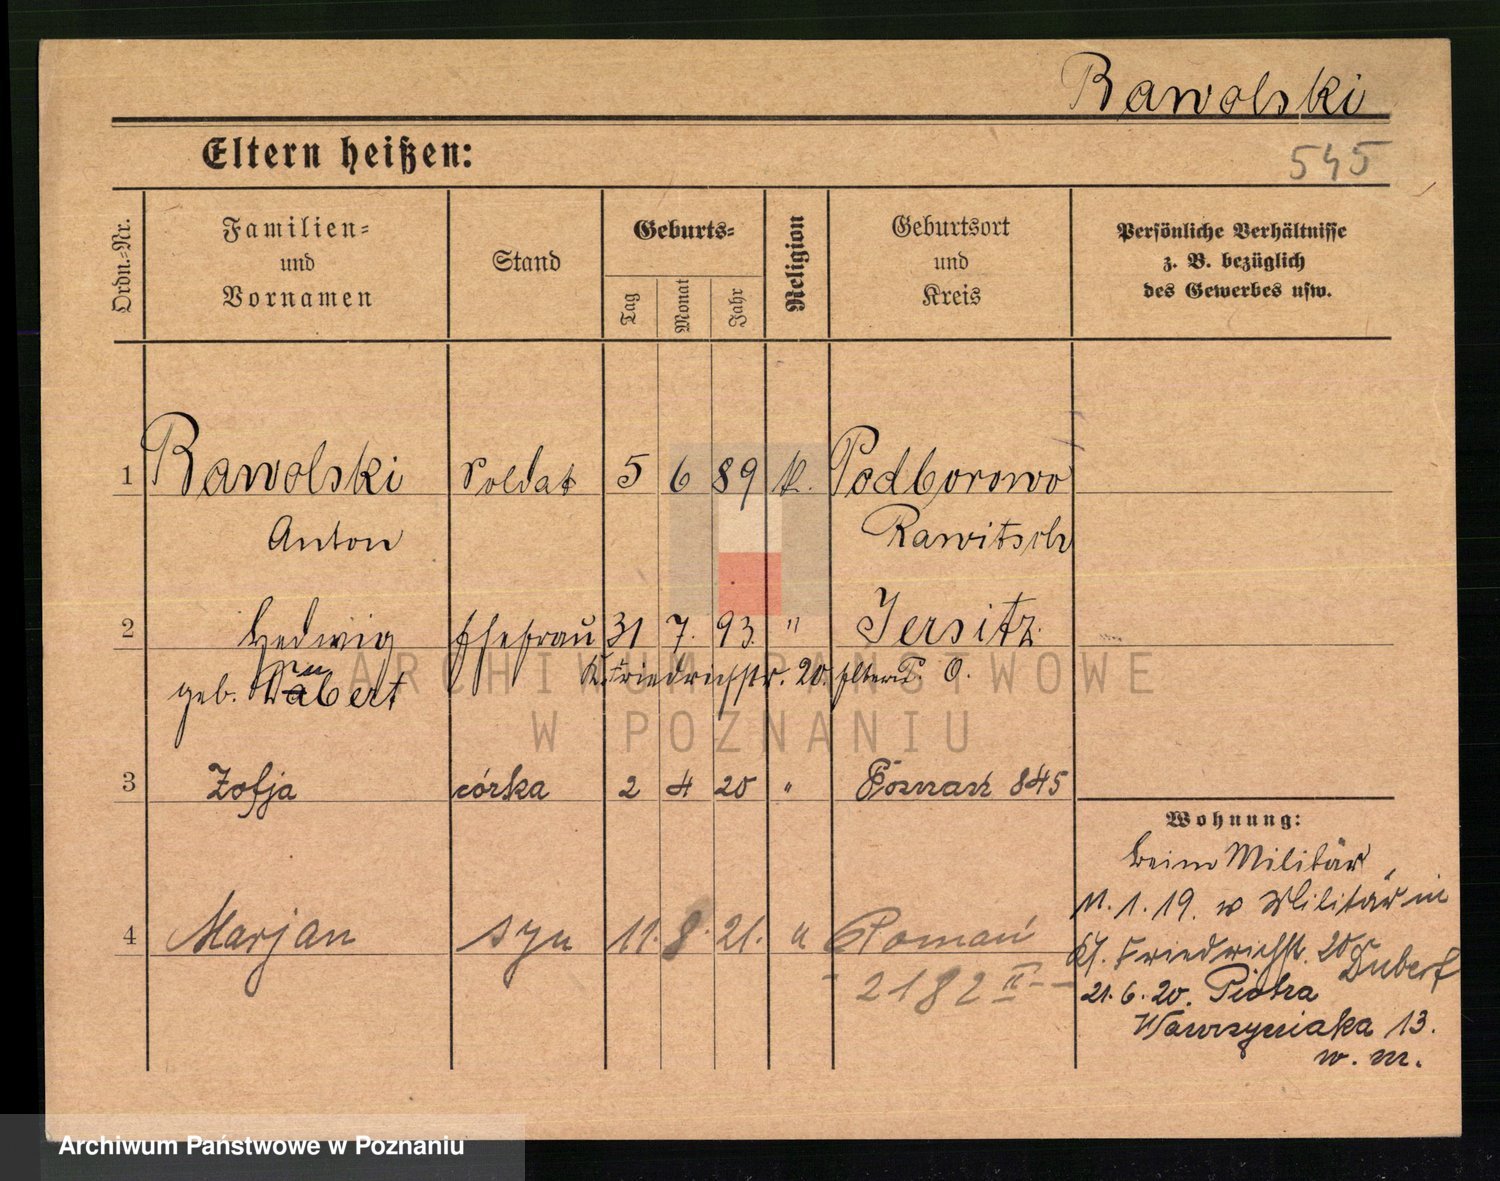 Rawolski
Eltern heißen:
545
Ordn.-Nr.
Familien-
und
Vornamen
Stand
Geburts-
Tag
Monat
Jahr
Religion
Geburtsort
und
Kreis
Persönliche Verhältnisse
z. B. bezüglich
des Gewerbes usw.
1 Rawolski Soldat 5 6 89 k. Podborowo
Anton Rawitsch
2 Hedwig Ehefrau 31 7. 93. " Jersitz
geb. Friedrichstr. 20.
ARCHIWUM PAŃSTWOWE
W POZNANIU
3 Zofja córka 2 4 20 " Poznań 845
4 Marjan syn 11. 8. 21. " Poznań
2182 II
Wohnung:
beim Militär
11. 1. 19. w Militär in
Kl. Friedrichstr. 20
21. 6. 20. Piotra
Wawrzyniaka 13.
w. m.
Archiwum Państwowe w Poznaniu